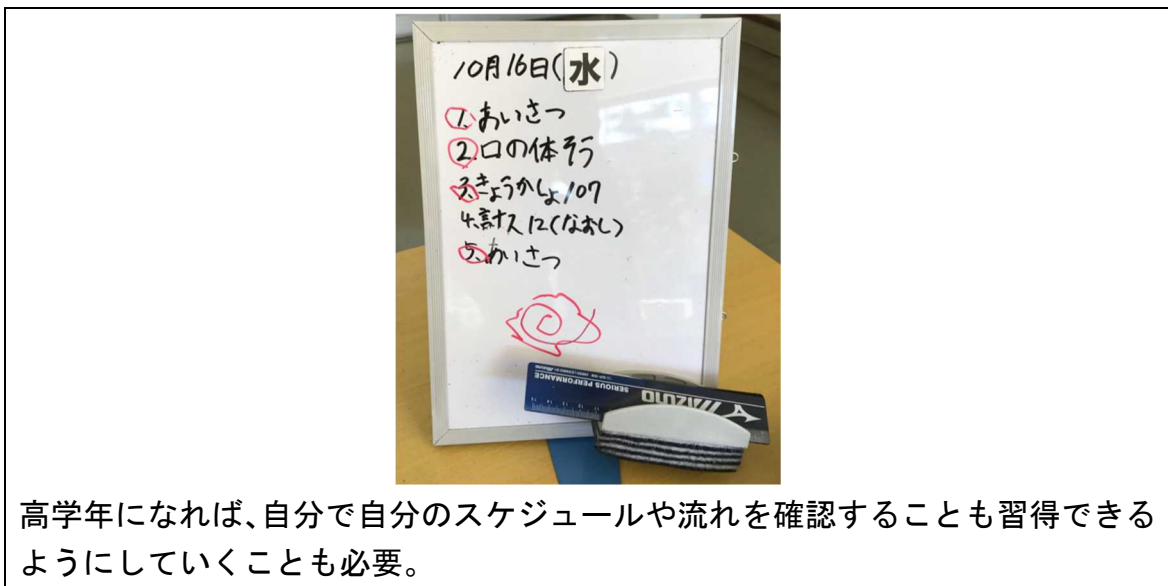 10月16日(水)
1.あいさつ
2.口の体そう
3.きょうかしょ107
4.計ス12(なおし)
5.あいさつ
MIZUNO
SERIOUS PERFORMANCE
高学年になれば、自分で自分のスケジュールや流れを確認することも習得できる
ようにしていくことも必要。